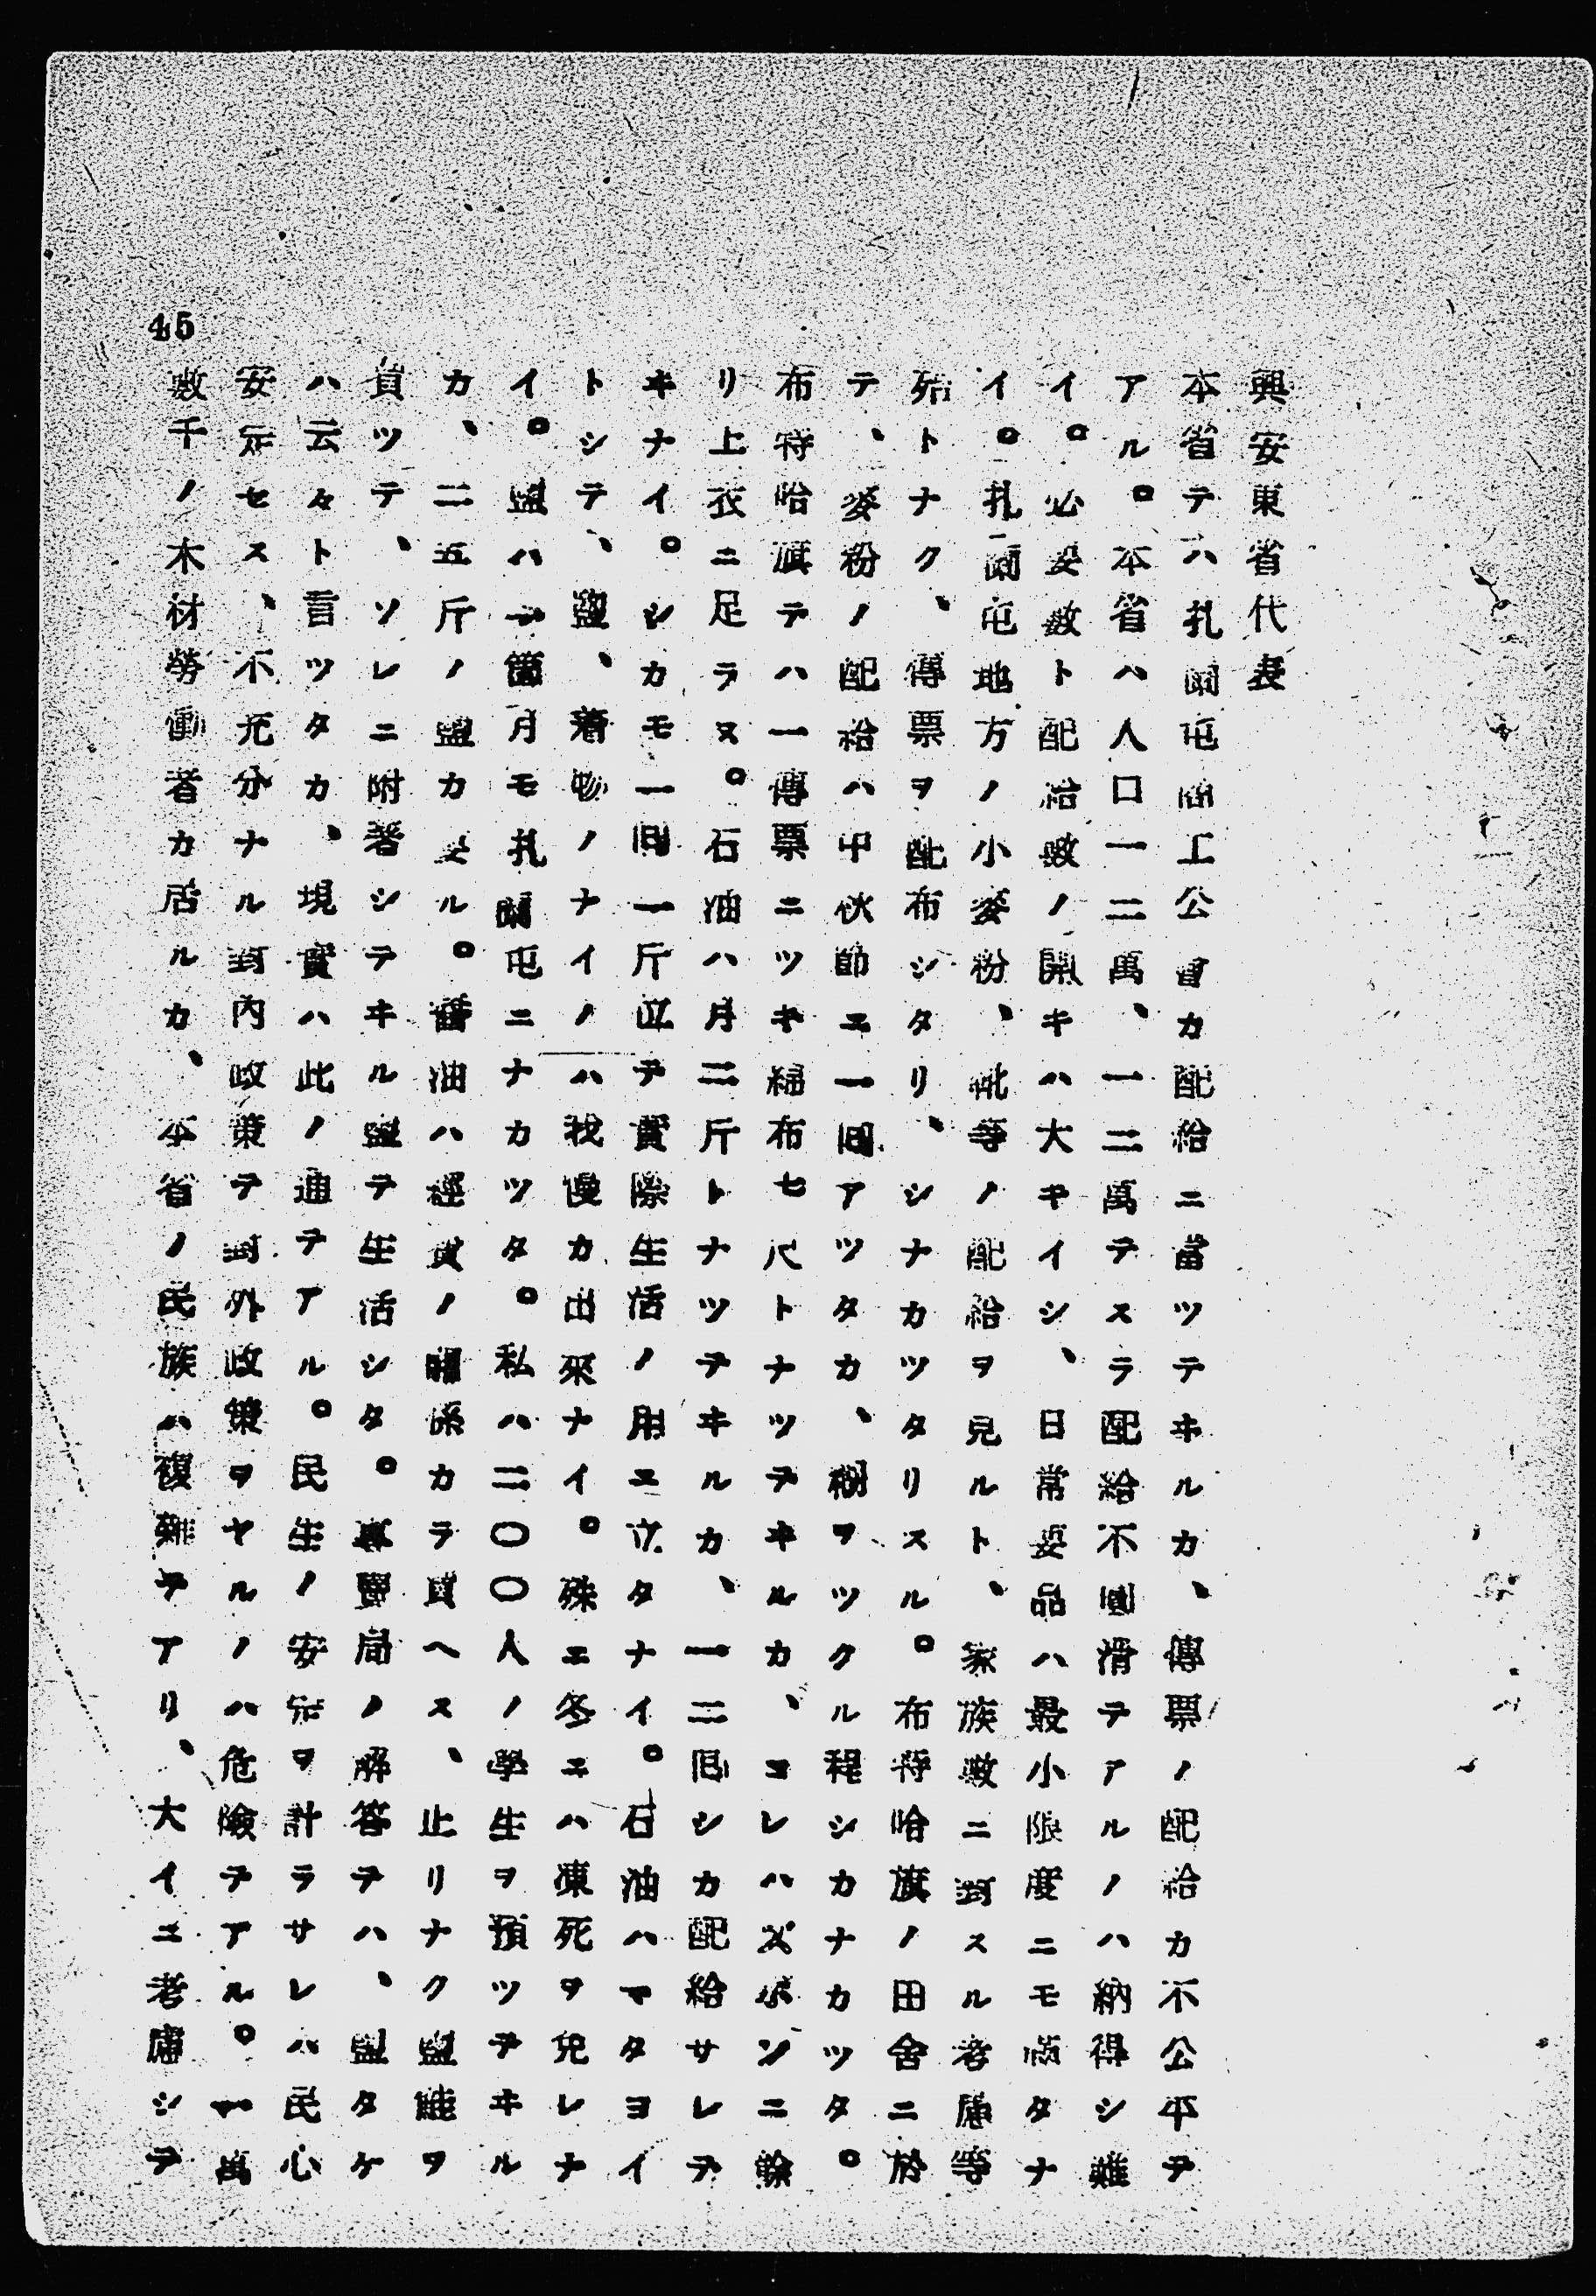 興安東省代表
本省テハ扎蘭屯商工公會カ配給ニ當ツテヰルカ、傳票ノ配給カ不公平テ
アル。本省ハ人口一二萬、一二萬テスラ配給不圓滑テアルノハ納得シ難
イ。必要數ト配給數ノ開キハ大キイシ、日常必要品ハ最小限度ニモ滿タナ
イ。扎蘭屯地方ノ小麥粉、靴等ノ配給ヲ見ルト、家族數ニ對スル考慮等
殆トナク、傳票ヲ配布シタリ、シナカツタリスル。布特哈旗ノ田舍ニ於
テ、麥粉ノ配給ハ中秋節ニ一回アツタカ、糊ヲツクル程シカナカツタ。
布特哈旗テハ一傳票ニツキ綿布七尺トナツテヰルカ、コレハズボンニ餘
リ上衣ニ足ラヌ。石油ハ月二斤トナツテヰルカ、一二回シカ配給サレテ
ヰナイ。シカモ一回一斤位テ實際生活ノ用ニ立タナイ。石油ハマタヨイ
トシテ、鹽、着物ノナイノハ我慢カ出來ナイ。殊ニ冬ニハ凍死ヲ免レナ
イ。鹽ハ一箇月モ扎蘭屯ニナカツタ。私ハ二〇〇人ノ學生ヲ預ツテヰル
カ、二五斤ノ鹽カ要ル。醬油ハ經費ノ關係カラ買ヘス、止リナク鹽鮭ヲ
買ツテ、ソレニ附着シテヰル鹽テ生活シタ。專賣局ノ解答テハ、鹽タケ
ハ云々ト言ツタカ、現實ハ此ノ通テアル。民生ノ安定ヲ計ラサレハ民心
安定セス、不充分ナル對內政策テ對外政策ヲヤルノハ危險テアル。一萬
數千ノ木材勞働者カ居ルカ、本省ノ民族ハ複雜テアリ、大イニ考慮シテ
45